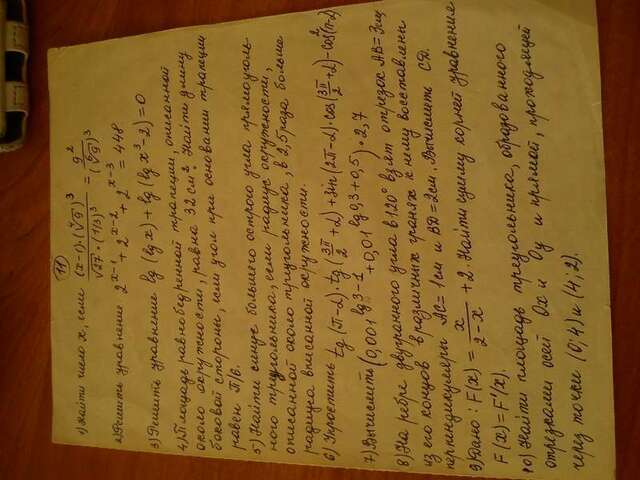 11
1) Найти число x, если (x-1)·(⁴√3)³ / √27 · (1/3)³ = 9² / (⁵√9)³
2) Решить уравнение 2^(x-1) + 2^(x-2) + 2^(x-3) = 448
3) Решить уравнение lg (lg x) + lg (lg x³ - 2) = 0
4) Площадь равнобедренной трапеции, описанной
около окружности, равна 32 см². Найти длину
боковой стороны, если угол при основании трапеции
равен π/6.
5) Найти синус большего острого угла прямоуголь-
ного треугольника, если радиус окружности,
описанной около треугольника, в 2,5 раза больше
радиуса вписанной окружности.
6) Упростить tg (π-α)·tg (3π/2 + α) + sin (2π-α)·cos(3π/2 + α) - cos²(π-α)
7) Вычислить (0,001 lg 3 - 1 + 0,01 lg 0,3 + 0,5) · 2,7
8) На ребре двугранного угла в 120° взят отрезок AB = 3 см,
из его концов в различных гранях к нему восставлены
перпендикуляры AC = 1 см и BD = 2 см. Вычислить CD.
9) Дано: F(x) = x / 2-x + 2. Найти сумму корней уравнения
F(x) = F'(x).
10) Найти площадь треугольника, образованного
отрезками осей Ox и Oy и прямой, проходящей
через точки (0; 4) и (4; 2).